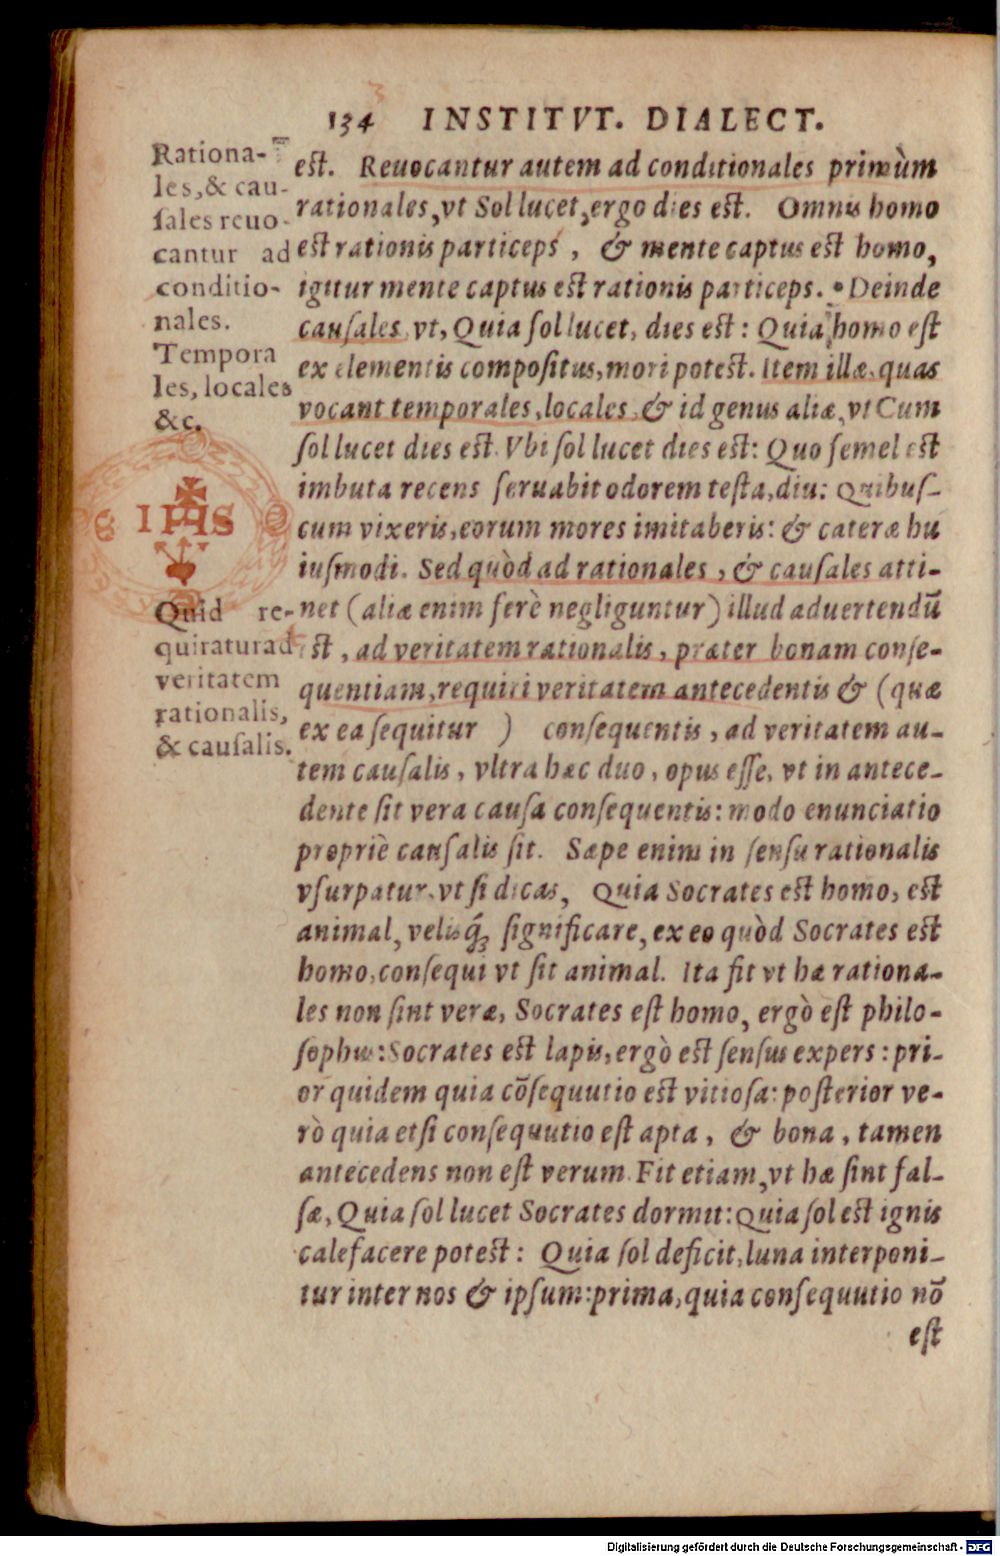 134 INSTITVT. DIALECT.
Rationa-
les, & cau-
sales reuo-
cantur ad
conditio-
nales.
Tempora
les, locales
&c.
IHS
Quid re-
quiratur ad
veritatem
rationalis,
& causalis.
est. Reuocantur autem ad conditionales primùm
rationales, vt Sol lucet, ergo dies est. Omnis homo
est rationis particeps, & mente captus est homo,
igitur mente captus est rationis particeps. Deinde
causales, vt, Quia sol lucet, dies est: Quia homo est
ex elementis compositus, mori potest. Item illæ, quas
vocant temporales, locales, & id genus aliæ, vt Cum
sol lucet dies est. Vbi sol lucet dies est: Quo semel est
imbuta recens seruabit odorem testa, diu: Quibus-
cum vixeris, eorum mores imitaberis: & cateræ hu
iusmodi. Sed quòd ad rationales, & causales atti-
net (aliæ enim ferè negliguntur) illud aduertendũ
est, ad veritatem rationalis, præter bonam conse-
quentiam, requiri veritatem antecedentis & (quæ
ex ea sequitur ) consequentis, ad veritatem au-
tem causalis, vltra hæc duo, opus esse, vt in antece-
dente sit vera causa consequentis: modo enunciatio
propriè causalis sit. Sæpe enim in sensu rationalis
vsurpatur, vt si dicas, Quia Socrates est homo, est
animal, velisq́; significare, ex eo quòd Socrates est
homo, consequi vt sit animal. Ita fit vt hæ rationa-
les non sint veræ, Socrates est homo, ergò est philo-
sophus: Socrates est lapis, ergò est sensus expers: pri-
or quidem quia cõsequutio est vitiosa: posterior ve-
rò quia etsi consequutio est apta, & bona, tamen
antecedens non est verum. Fit etiam, vt hæ sint fal-
sæ, Quia sol lucet Socrates dormit: Quia sol est ignis
calefacere potest: Quia sol deficit, luna interponi-
tur inter nos & ipsum: prima, quia consequutio nõ
est
Digitalisierung gefördert durch die Deutsche Forschungsgemeinschaft - DFG